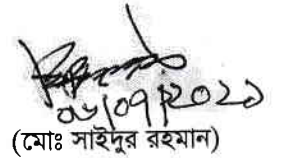 ০৬/০৭/২০২১
(মোঃ সাইদুর রহমান)